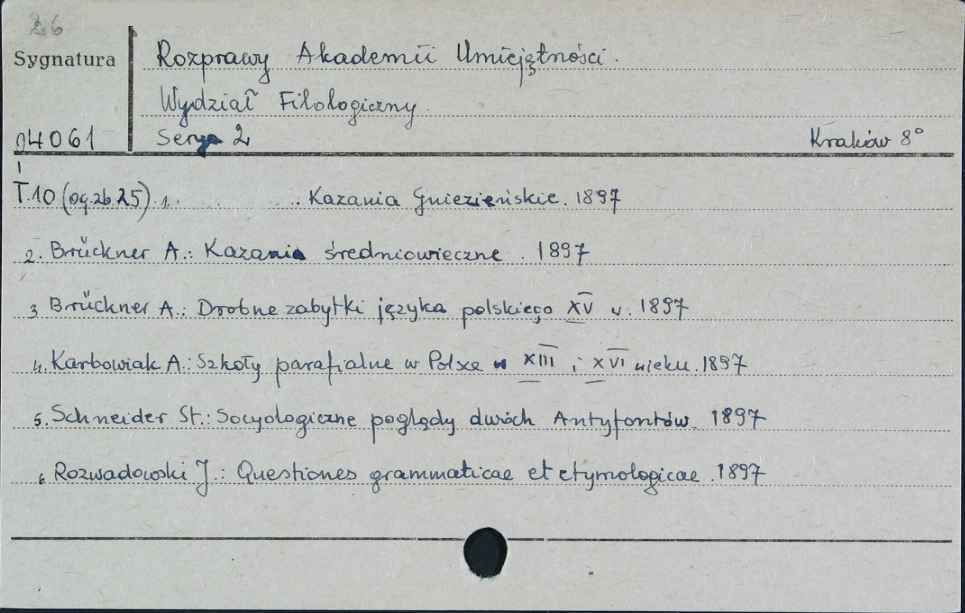 26
Sygnatura
Rozprawy Akademii Umiejętności.
Wydział Filologiczny.
04061
Serya 2
Kraków 8°
T.10 (og.zb.25) 1. Kazania Gnieźieńskie. 1897
2. Brückner A.: Kazania średniowieczne. 1897
3 Brückner A.: Drobne zabytki języka polskiego XV w. 1897
4. Karbowiak A.: Szkoły parafialne w Polsce w XIII i XVI wieku. 1897
5. Schneider St.: Socyologiczne poglądy dwóch Antyfontów. 1897
6 Rozwadowski J.: Questiones grammaticae et etymologicae. 1897